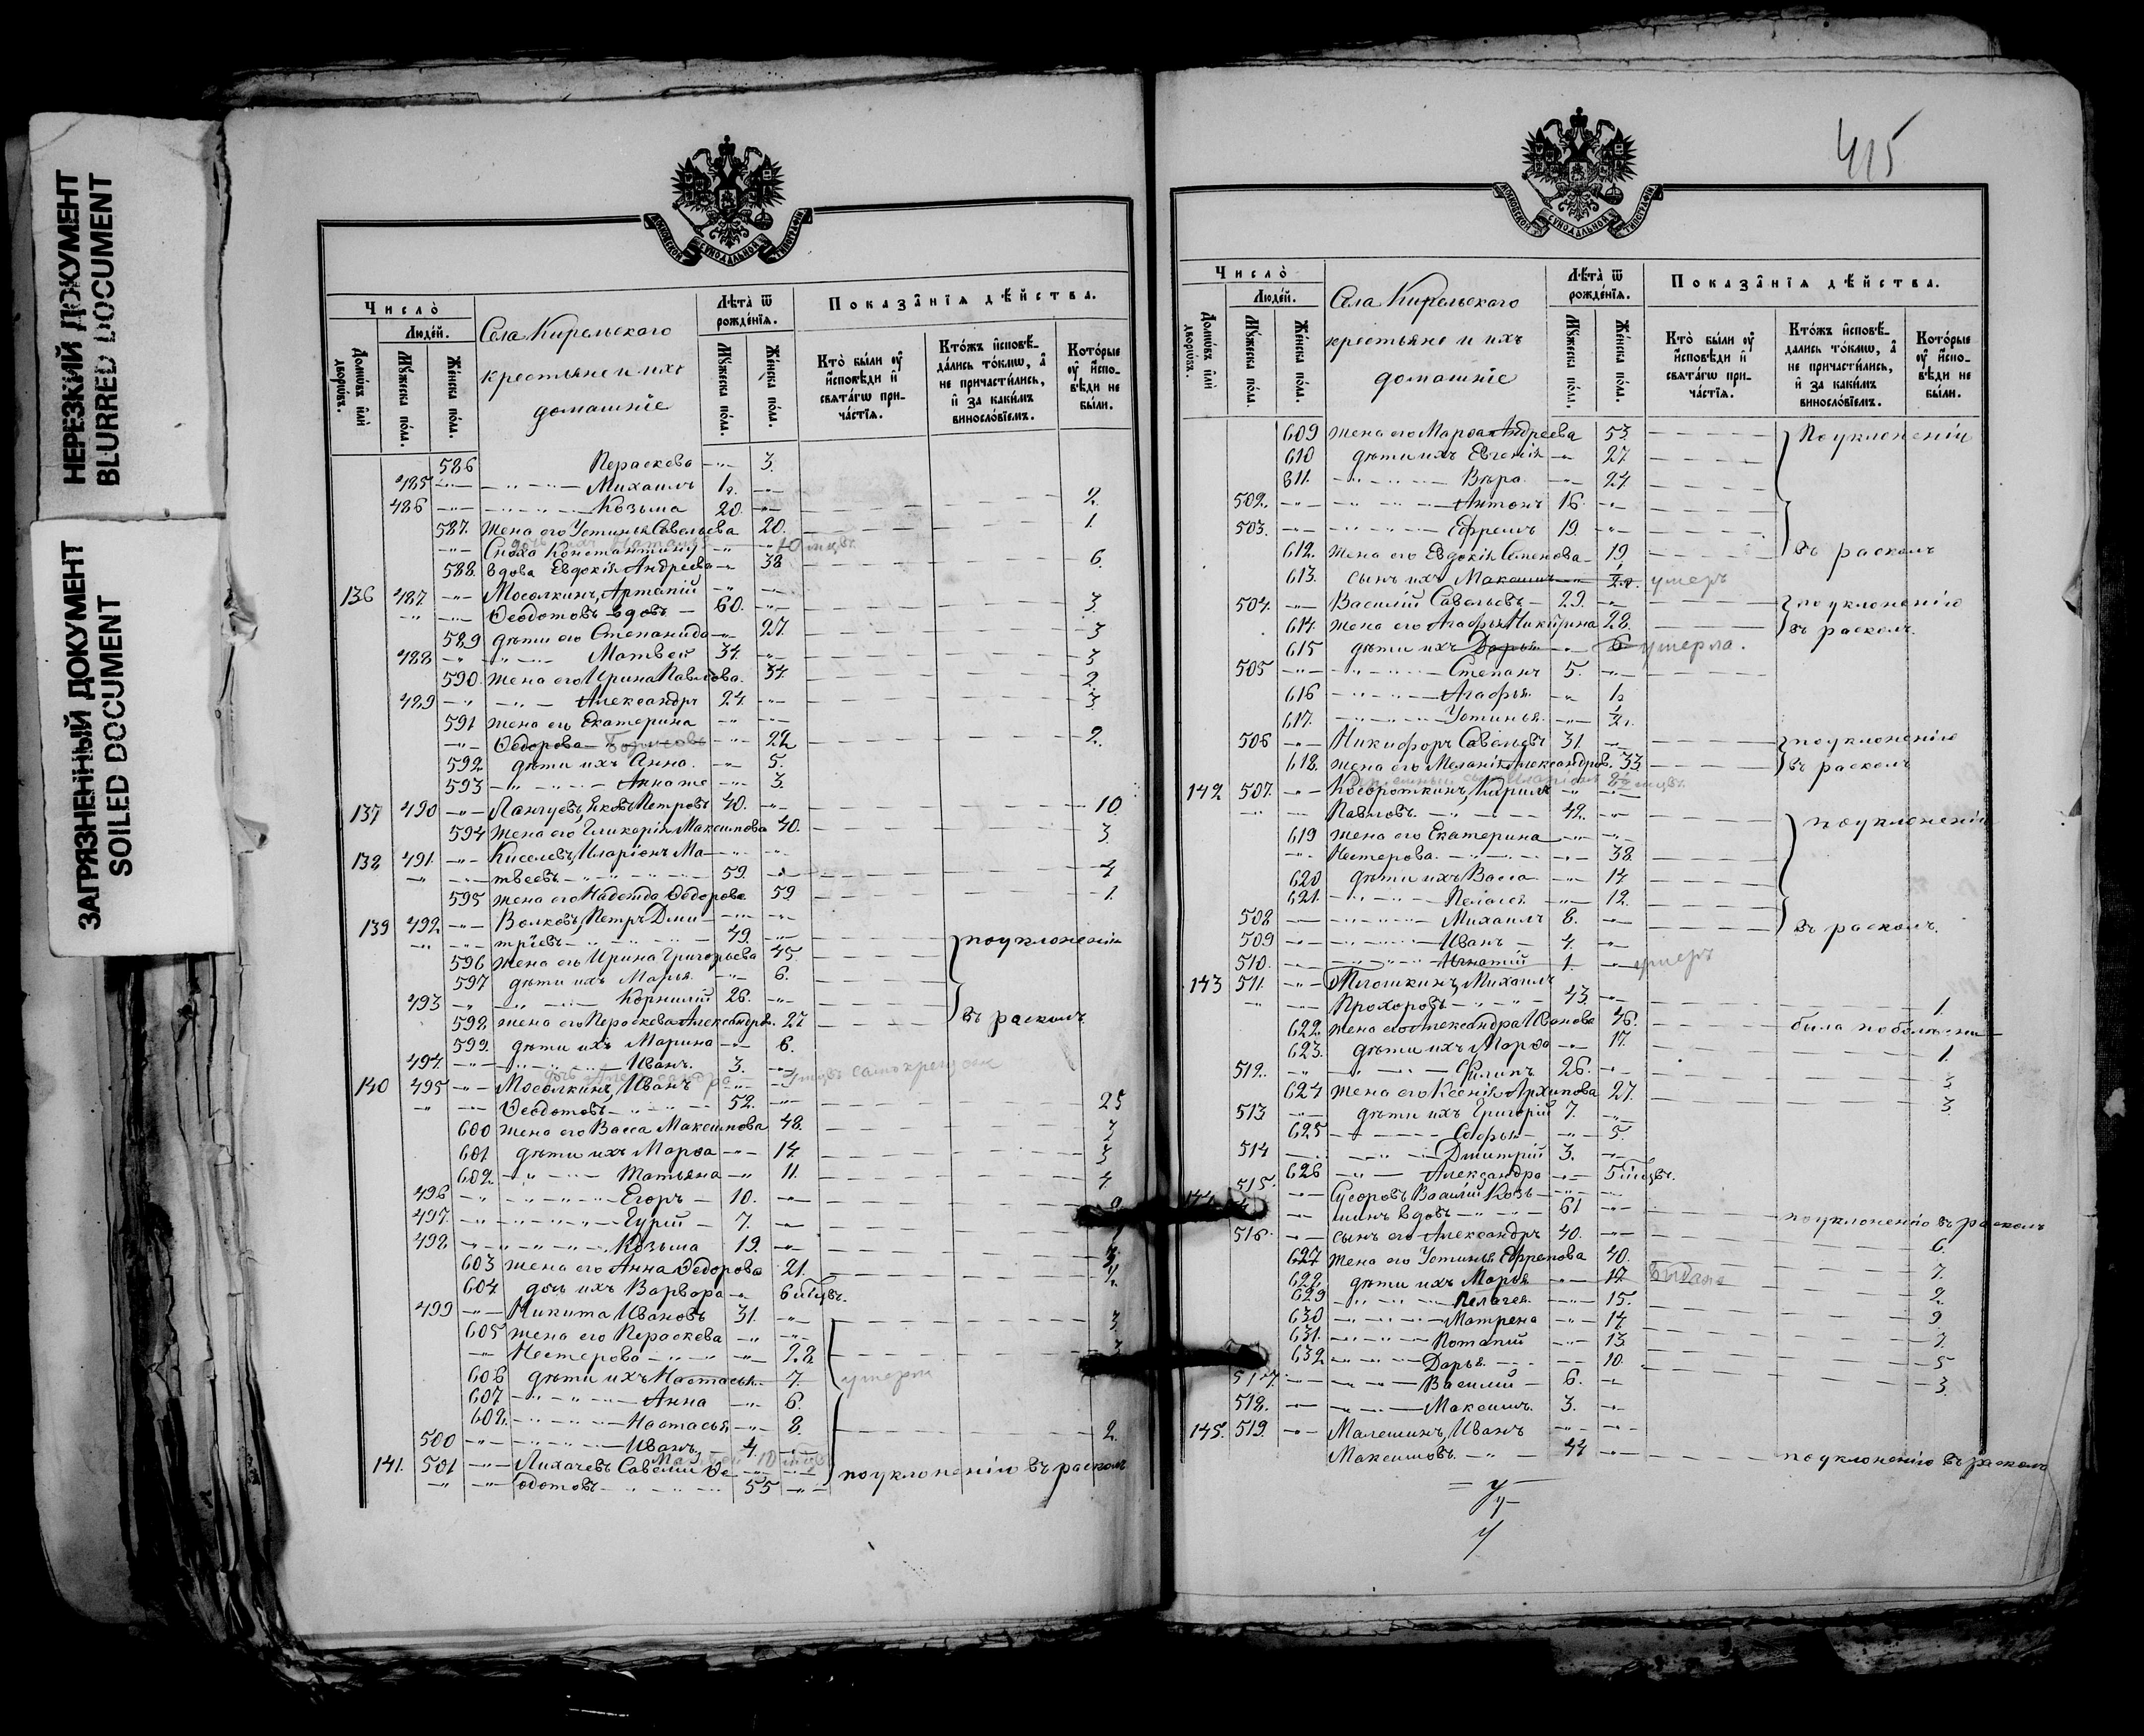 НЕРЕЗКИЙ ДОКУМЕНТ
BLURRED DOCUMENT
ЗАГРЯЗНЕННЫЙ ДОКУМЕНТ
SOILED DOCUMENT
МОСКОВСКОЙ СѴНОДАЛЬНОЙ ТИПОГРАФІИ
Число̀
Людéй.
Домѡ́въ и҆лѝ дворѡ́въ.
Мꙋ́жеска по́ла.
Же́нска по́ла.
Села Кирельскаго
крестьяне и ихъ
домашніе
Лѣ́та ѿ рождéнїя.
Мꙋ́жеска по́ла.
Же́нска по́ла.
Показа̂нїѧ дѣ́йства.
Кто̀ бы́ли ᲂу҆ и҆́сповѣди и҆ свѧта́гѡ причáстїѧ.
Кто́жъ и҆сповѣ́дались то́кмѡ, а҆ не причасти́лись, и҆ за каки́мъ винослóвїемъ.
Кото́рые ᲂу҆ и҆́сповѣди не бы́ли.
586 Пераскева 3.
485 Михаилъ 1 2.
486 Козьма 20. 2.
587. жена его Устинья Савельева 20. 1.
Сноха Константину
588. вдова Евдокія Андреева 38 6.
136 487. Мосолкинъ, Артапій
Ѳеодотовъ вдовъ 60. 3.
589 дѣти его Степанида 27. 3
488 Матвей 34. 3
590. жена его Ирина Павлова. 34. 2.
489 Александръ 24. 3.
591 жена его Екатерина
Ѳедорова 22 2.
592 дѣти ихъ Анна. 5.
593 Анна же 3.
137 490 Лангуевъ, Яковъ Петровъ 40. 10.
594 жена его Гликерія Максимова 40. 3.
138 491. Киселевъ, Иларіонъ Ма
твеевъ 59. 4
595 жена его Надежда Ѳедорова 59 1.
139 492 Волковъ, Петръ Дми
тріевъ 49. по уклоненію
596 жена его Ирина Григорьева 45.
597 дѣти ихъ Марья 6.
493 Корнилій 26. въ расколъ
598. жена его Пераскева Александр. 27
599. дѣти ихъ Марина 6.
494. Иванъ. 3.
140 495 Мосолкинъ, Иванъ
Ѳеодотовъ 52. 25
600 жена его Васса Максимова 48. 3
601 дѣти ихъ Марѳа 14. 3
602. Татьяна 11. 4
496 Егоръ 10.
497. Гурій 7.
498 Козьма 19.
603 жена его Анна Ѳедорова 21.
604 дочь ихъ Варвара 6 мѣсцвъ.
499 Никита Ивановъ 31. 3
605 жена его Пераскева
Нестерова 28
606 дѣти ихъ Настасья 7. умерла
607. Анна 6.
608. Настасья 8. 2.
500 Иванъ 4.
141. 501 Лихачевъ Савелій Ѳе
одотовъ 55 по уклоненію въ расколъ
415
МОСКОВСКОЙ СѴНОДАЛЬНОЙ ТИПОГРАФІИ
Число̀
Людéй.
Домѡ́въ и҆лѝ дворѡ́въ.
Мꙋ́жеска по́ла.
Же́нска по́ла.
Села Кирельскаго
крестьяне и ихъ
домашніе
Лѣ́та ѿ рождéнїя.
Мꙋ́жеска по́ла.
Же́нска по́ла.
Показа̂нїѧ дѣ́йства.
Кто̀ бы́ли ᲂу҆ и҆́сповѣди и҆ свѧта́гѡ причáстїѧ.
Кто́жъ и҆сповѣ́дались то́кмѡ, а҆ не причасти́лись, и҆ за каки́мъ винослóвїемъ.
Кото́рые ᲂу҆ и҆́сповѣди не бы́ли.
609 жена его Марѳа Андреева 53. По уклоненію
610 дѣти ихъ Евгенія 27.
611. Вѣра 24.
502. Антонъ 16.
503. Ефремъ 19.
612. жена его Евдокія Семенова 19 въ расколъ
613. сынъ ихъ Максимъ умеръ
504. Василій Савельевъ 29. по уклоненію
614. жена его Агафья Никитина 28. въ расколъ.
615 дѣти ихъ Дарья 6 умерла.
505 Степанъ 5.
616 Агафья 1
617. Устинья
506 Никифоръ Савельевъ 31. по уклоненію
618. жена его Меланія Александров. 33 въ расколъ
142 507. Косороткинъ, Кирилъ
Павловъ. 42. по уклоненію
619 жена его Екатерина
Нестерова. 38.
620 дѣти ихъ Васса 14
621. Пелагея 12.
508 Михаилъ 8. въ расколъ.
509 Иванъ 4.
510. Игнатій 1. умеръ
143 511. Тягошкинъ, Михаилъ
Прохоровъ 43. 1.
622. жена его Александра Иванова 46. была по болѣзни
623. дѣти ихъ Марѳа 17. 1.
512. Филипъ 26.
624 жена его Ксенія Архипова 27. 3.
513 дѣти ихъ Григорій 7.
625 Софья 5.
514 Дмитрій 3.
626 Александра 5 мѣсцвъ.
515. Суворовъ Василій Козь
минъ вдовъ 61 по уклоненію въ расколъ
516. сынъ его Александръ 40. 6.
627 жена его Устинья Ефремова 40. 7.
628 дѣти ихъ Марья 18 выдана 2
629 Пелагея 15. 9
630 Матрена 14 7.
631. Потапій 13. 5
632 Дарья 10. 3.
517. Василій 6.
518. Максимъ. 3.
145. 519. Малешинъ, Иванъ
Максимовъ. 44 по уклоненію въ расколъ